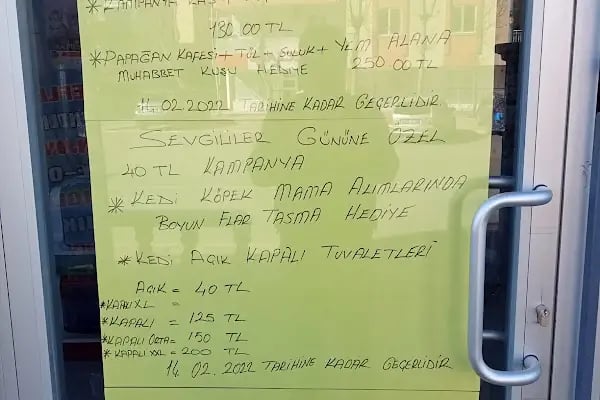 *KAMPANYA
130.00 TL
*PAPAĞAN KAFESİ + TÜL + SULUK + YEM ALANA
MUHABBET KUŞU HEDİYE 250.00 TL
14.02.2022 TARİHİNE KADAR GEÇERLİDİR.
SEVGİLİLER GÜNÜNE ÖZEL
40 TL KAMPANYA
*KEDİ KÖPEK MAMA ALIMLARINDA
BOYUN FLAR TASMA HEDİYE
*KEDİ AÇIK KAPALI TUVALETLERİ
AÇIK = 40 TL
*KAPALI XL =
*KAPALI = 125 TL
*KAPALI ORTA = 150 TL
*KAPALI XXL = 200 TL
14.02.2022 TARİHİNE KADAR GEÇERLİDİR